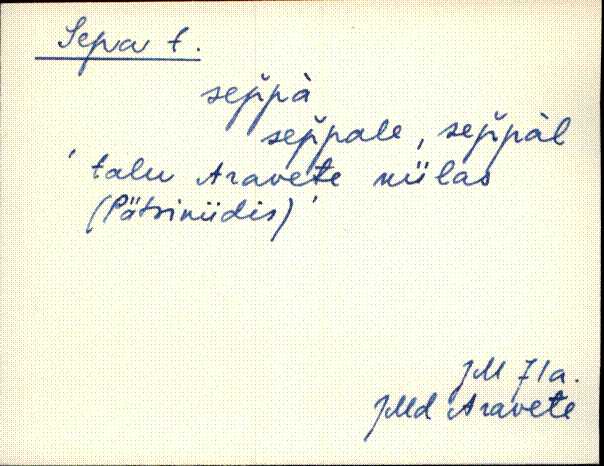 Sepa t.
sep̆p̆à
sep̆p̆ale, sep̆p̆àl
'talu Aravete külas
(Pätsiniidis)'
JM 71a.
JMd Aravete